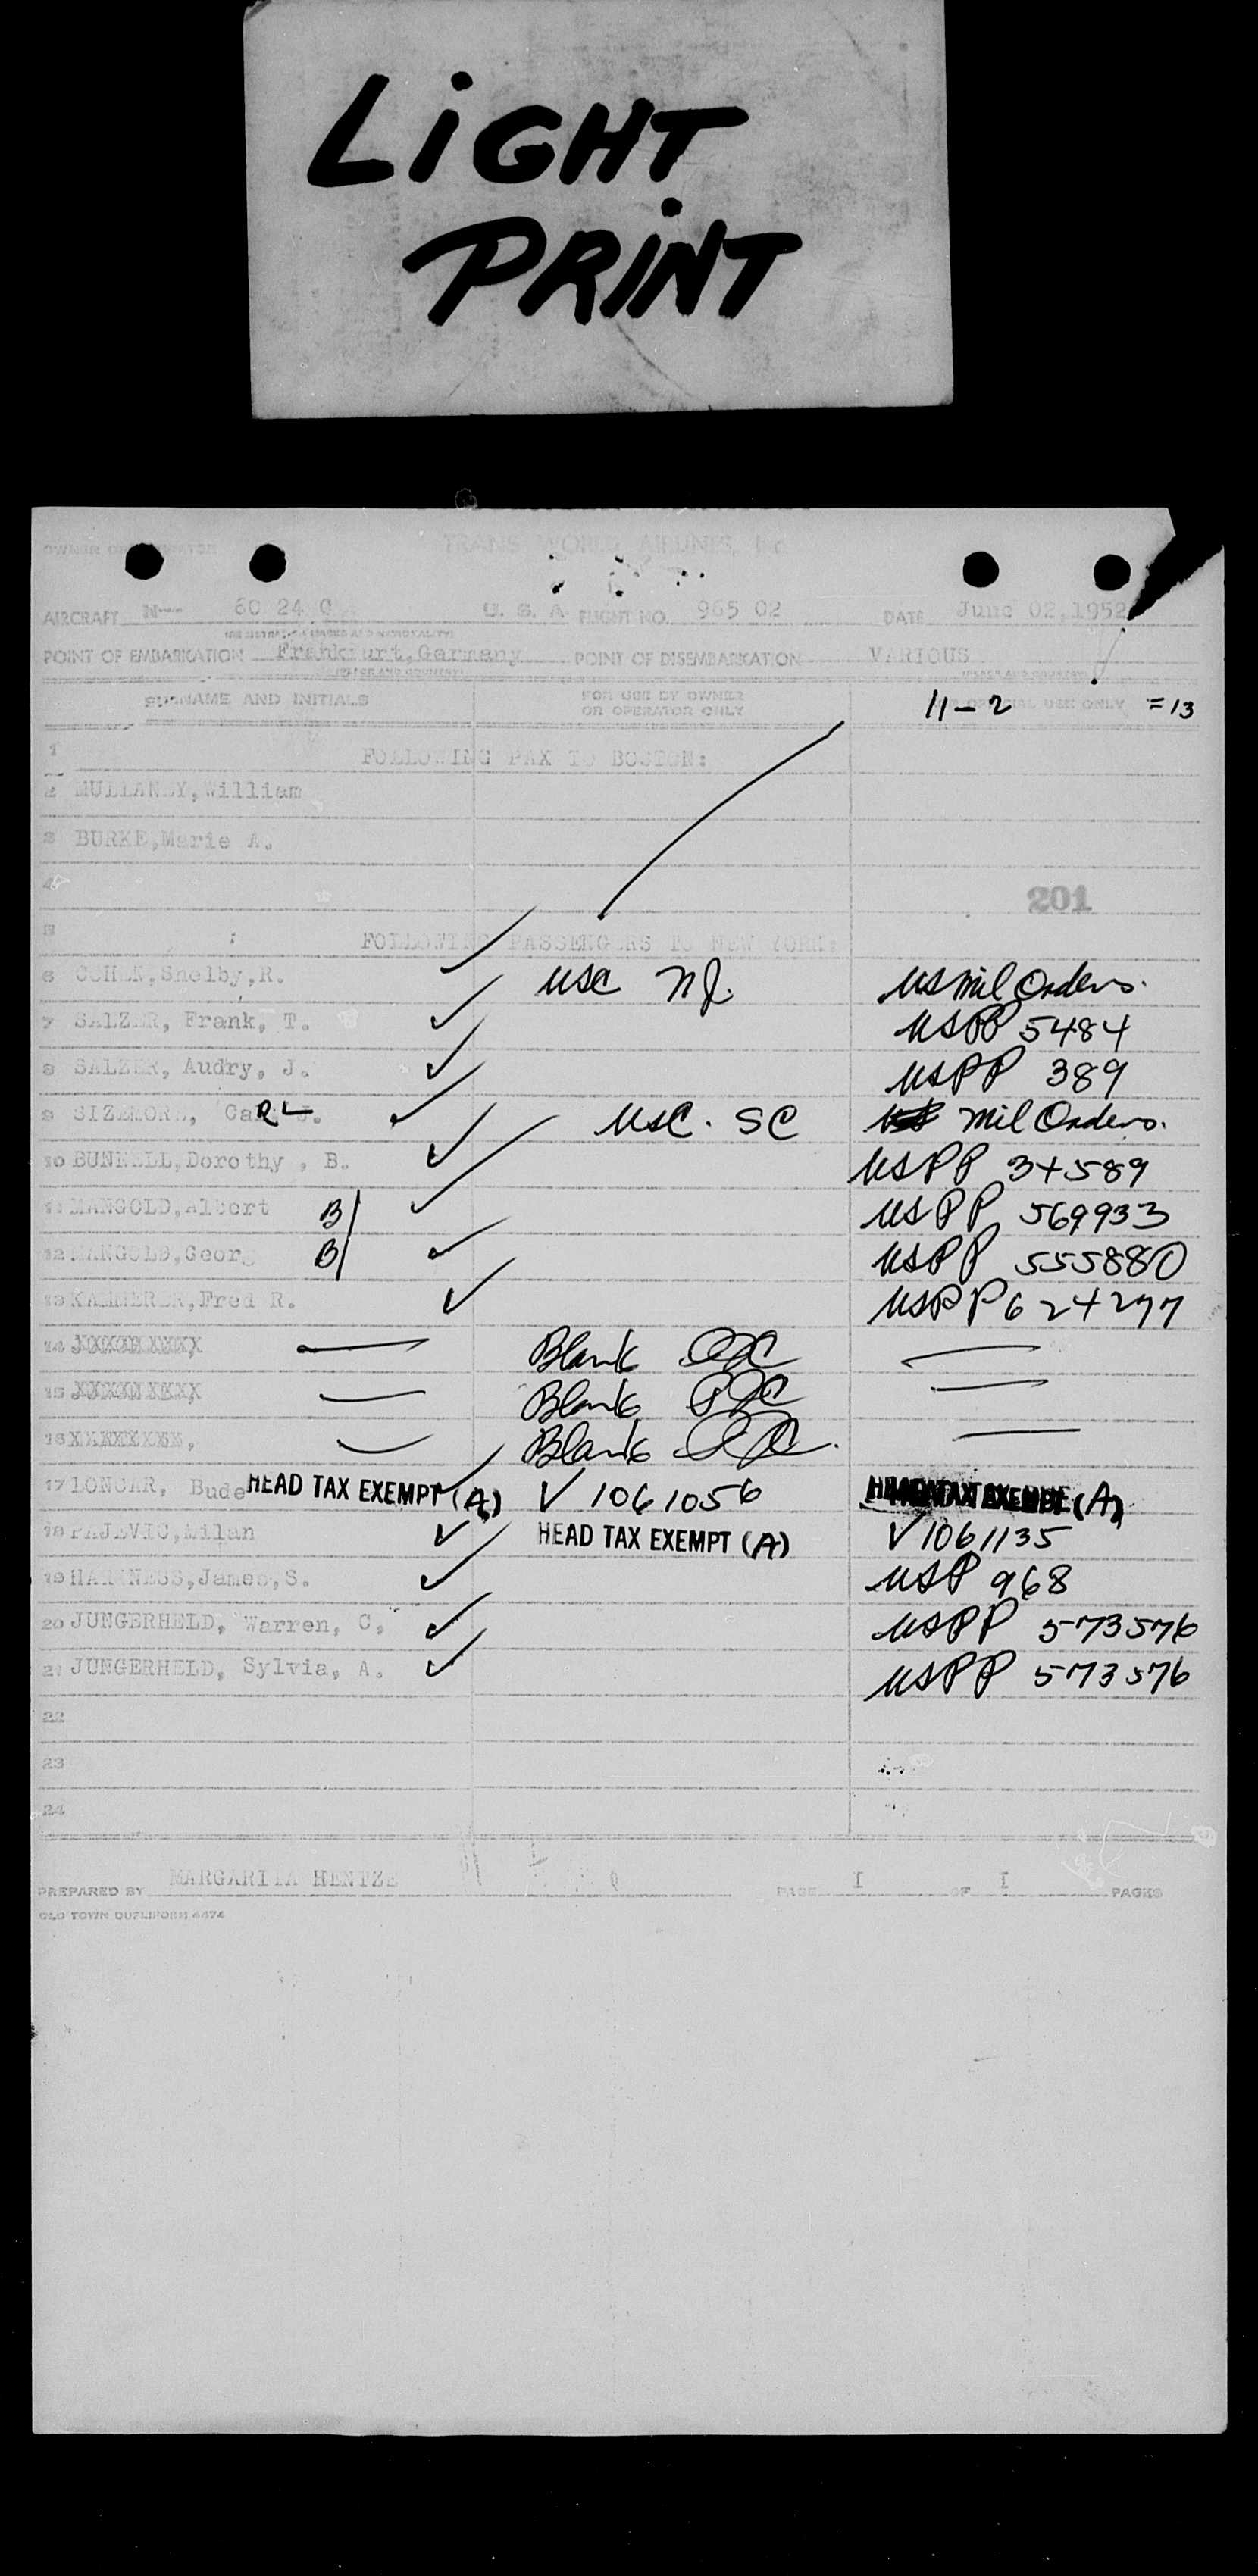 LiGHT
PRiNT
OWNER OR OPERATOR TRANS WORLD AIRLINES, Inc.
AIRCRAFT N--- 60 24 C U. S. A. FLIGHT NO. 965 02 DATE June 02,1952
POINT OF EMBARKATION Frankfurt,Germany POINT OF DISEMBARKATION VARIOUS
SURNAME AND INITIALS FOR USE BY OWNER OR OPERATOR ONLY 11-2 OFFICIAL USE ONLY =13
1 FOLLOWING PAX TO BOSTON:
2 MULLANEY,William
3 BURKE,Marie A.
4 201
5 FOLLOWING PASSENGERS TO NEW YORK:
6 COHEN,Shelby,R. ✓ USC NJ. US Mil Orders.
7 SALZER, Frank, T. ✓ USPP 5484
8 SALZER, Audry, J. ✓ USPP 389
9 SIZEMORE, Carl J. ✓ USC. SC Mil Orders.
10 BUNNELL,Dorothy , B. ✓ USPP 34589
11 MANGOLD,Albert B ✓ USPP 569933
12 MANGOLD,Georg B ✓ USPP 555880
13 KAMMERER,Fred R. ✓ USPP 624277
14 — Blank —
15 — Blank —
16 — Blank —
17 LONCAR, Bude HEAD TAX EXEMPT (A) ✓ V 1061056 HEAD TAX EXEMPT (A)
18 PAJEVIC,Milan ✓ HEAD TAX EXEMPT (A) V 1061135
19 HARKNESS,James,S. ✓ USP 968
20 JUNGERHELD, Warren, C, ✓ USPP 573576
21 JUNGERHELD, Sylvia, A. ✓ USPP 573576
22
23
24
PREPARED BY MARGARITA HENTZE PAGE I OF I PAGES
OLD TOWN DUPLIFORM 4474